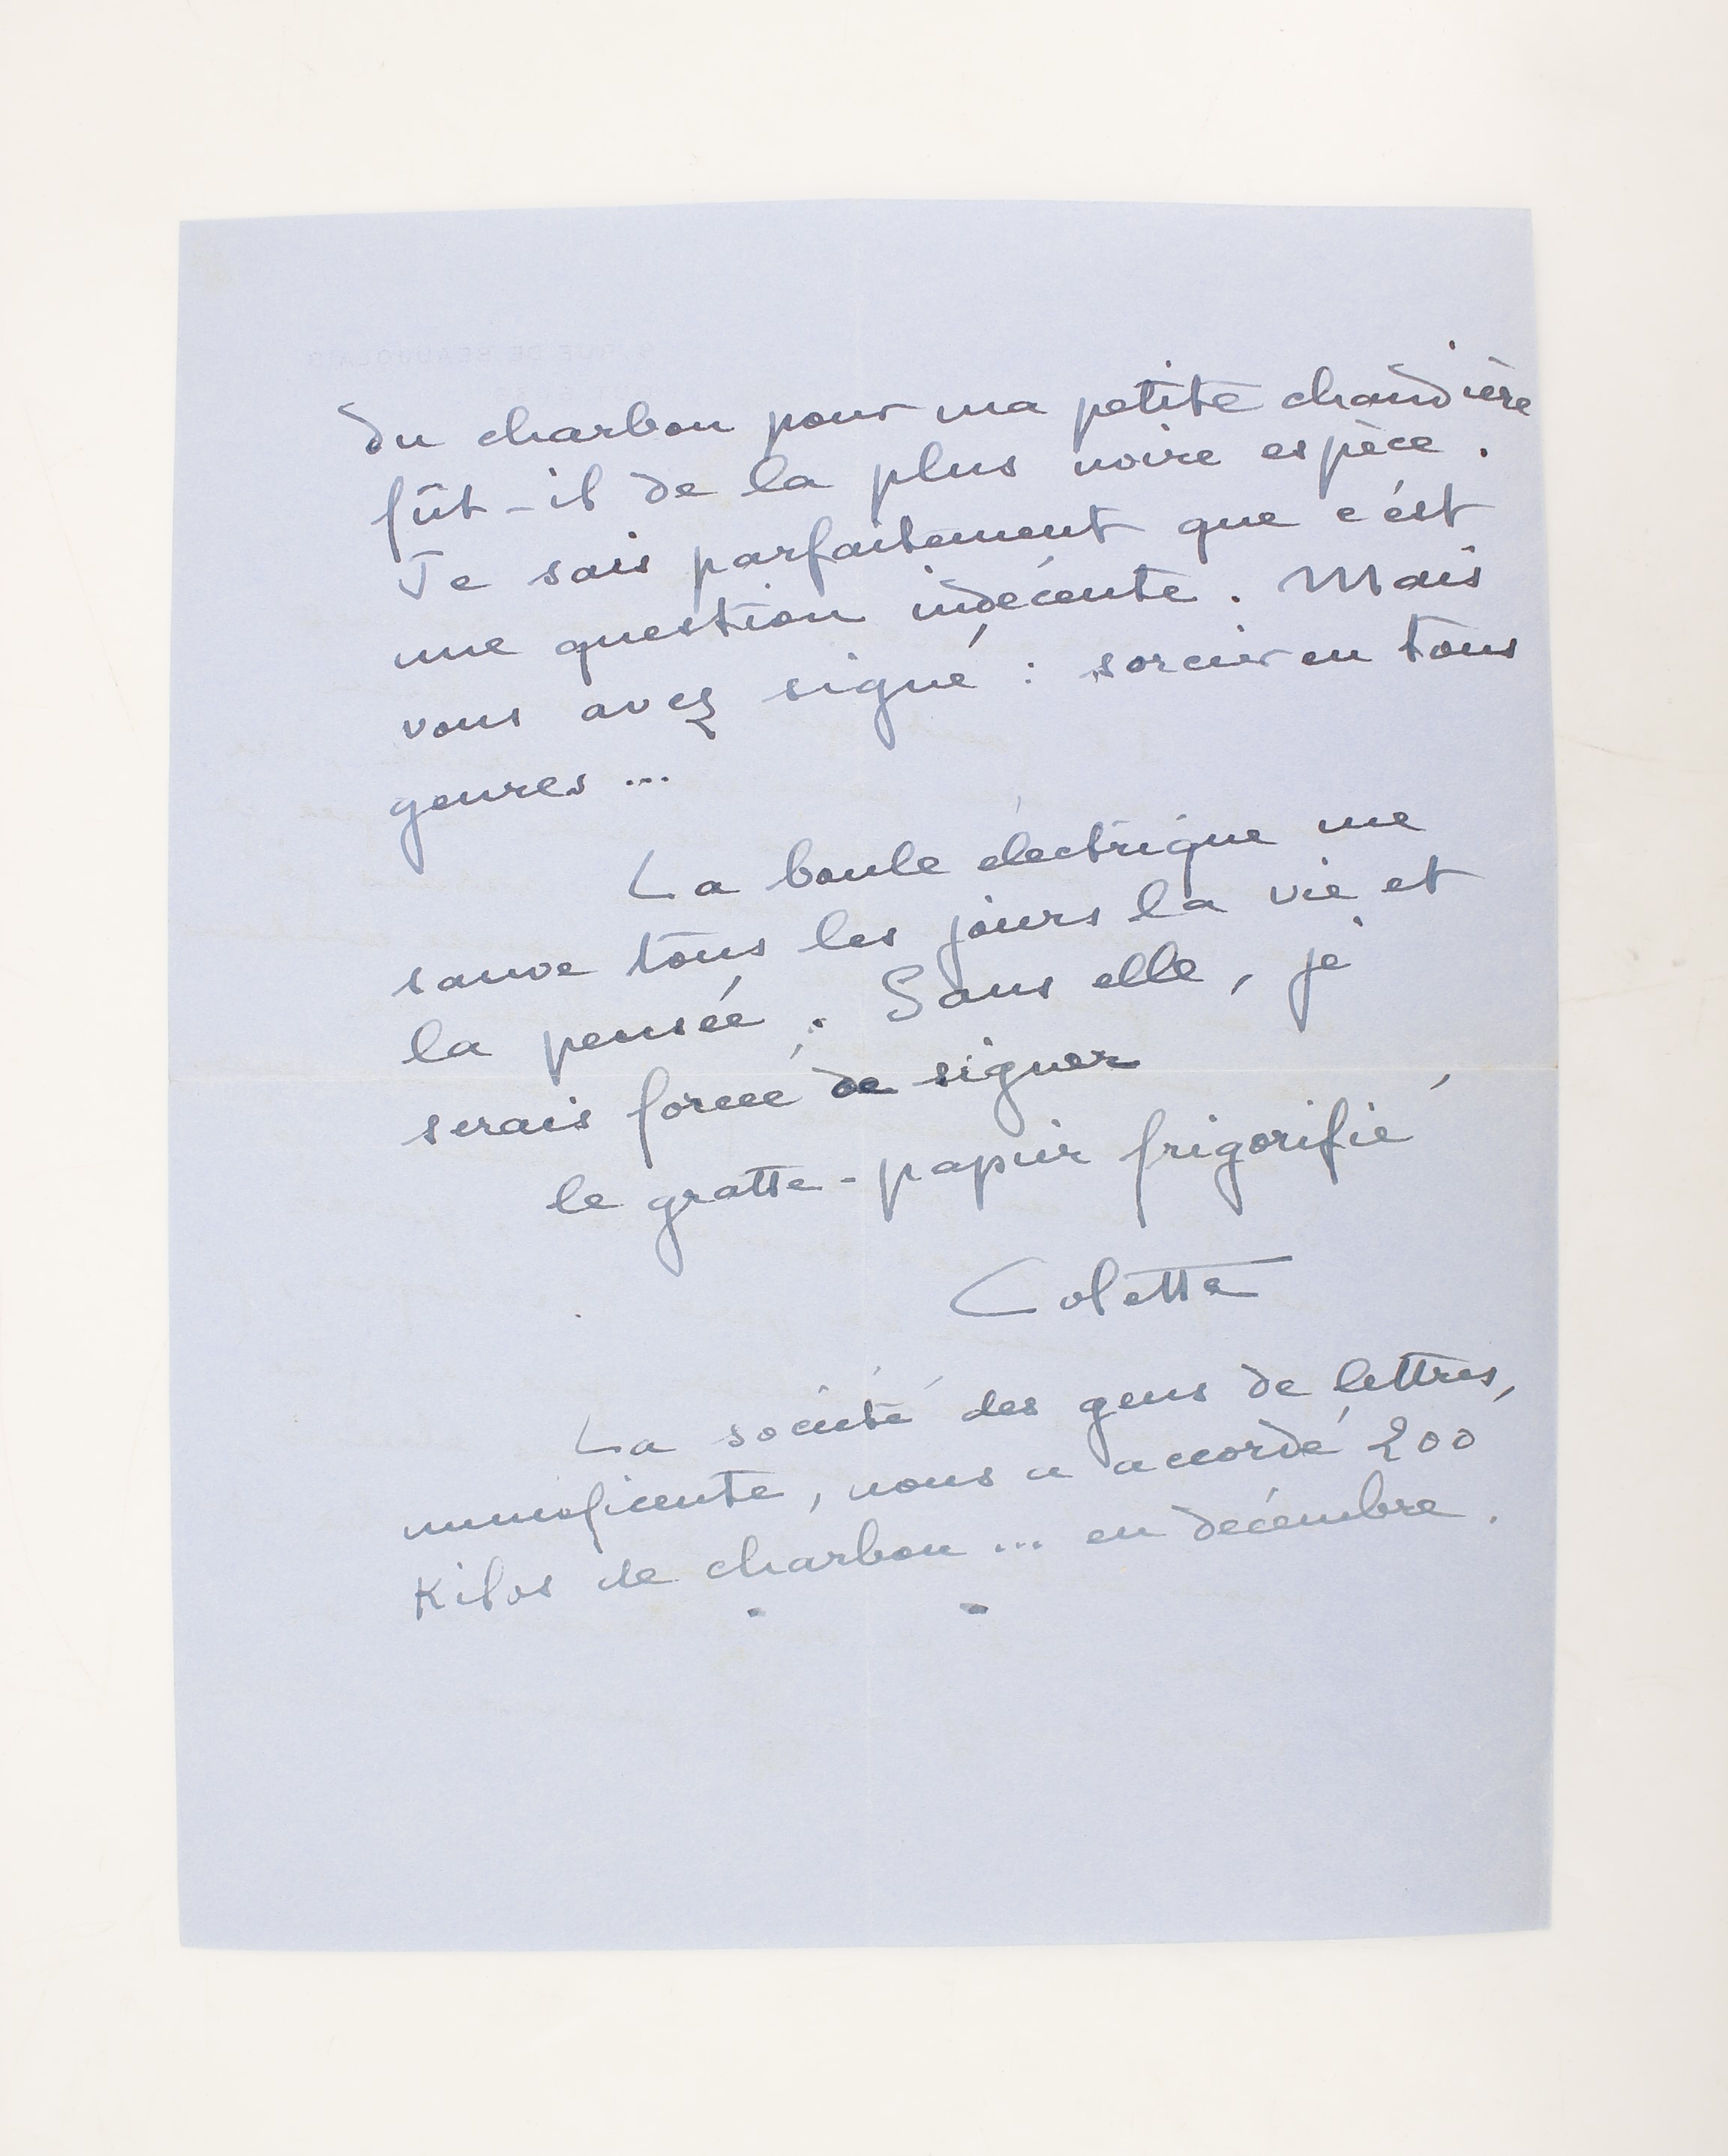 du charbon pour ma petite chaudière
fût-il de la plus noire espèce.
Je sais parfaitement que c'est
une question indécente. Mais
vous avez signé : sorcier en tous
genres ...
La boule électrique me
sauve tous les jours la vie et
la pensée. Sans elle, je
serais forcé de signer
le gratte-papier frigorifié
Colette
La société des gens de lettres,
munificente, nous a accordé 200
Kilos de charbon ... en décembre.